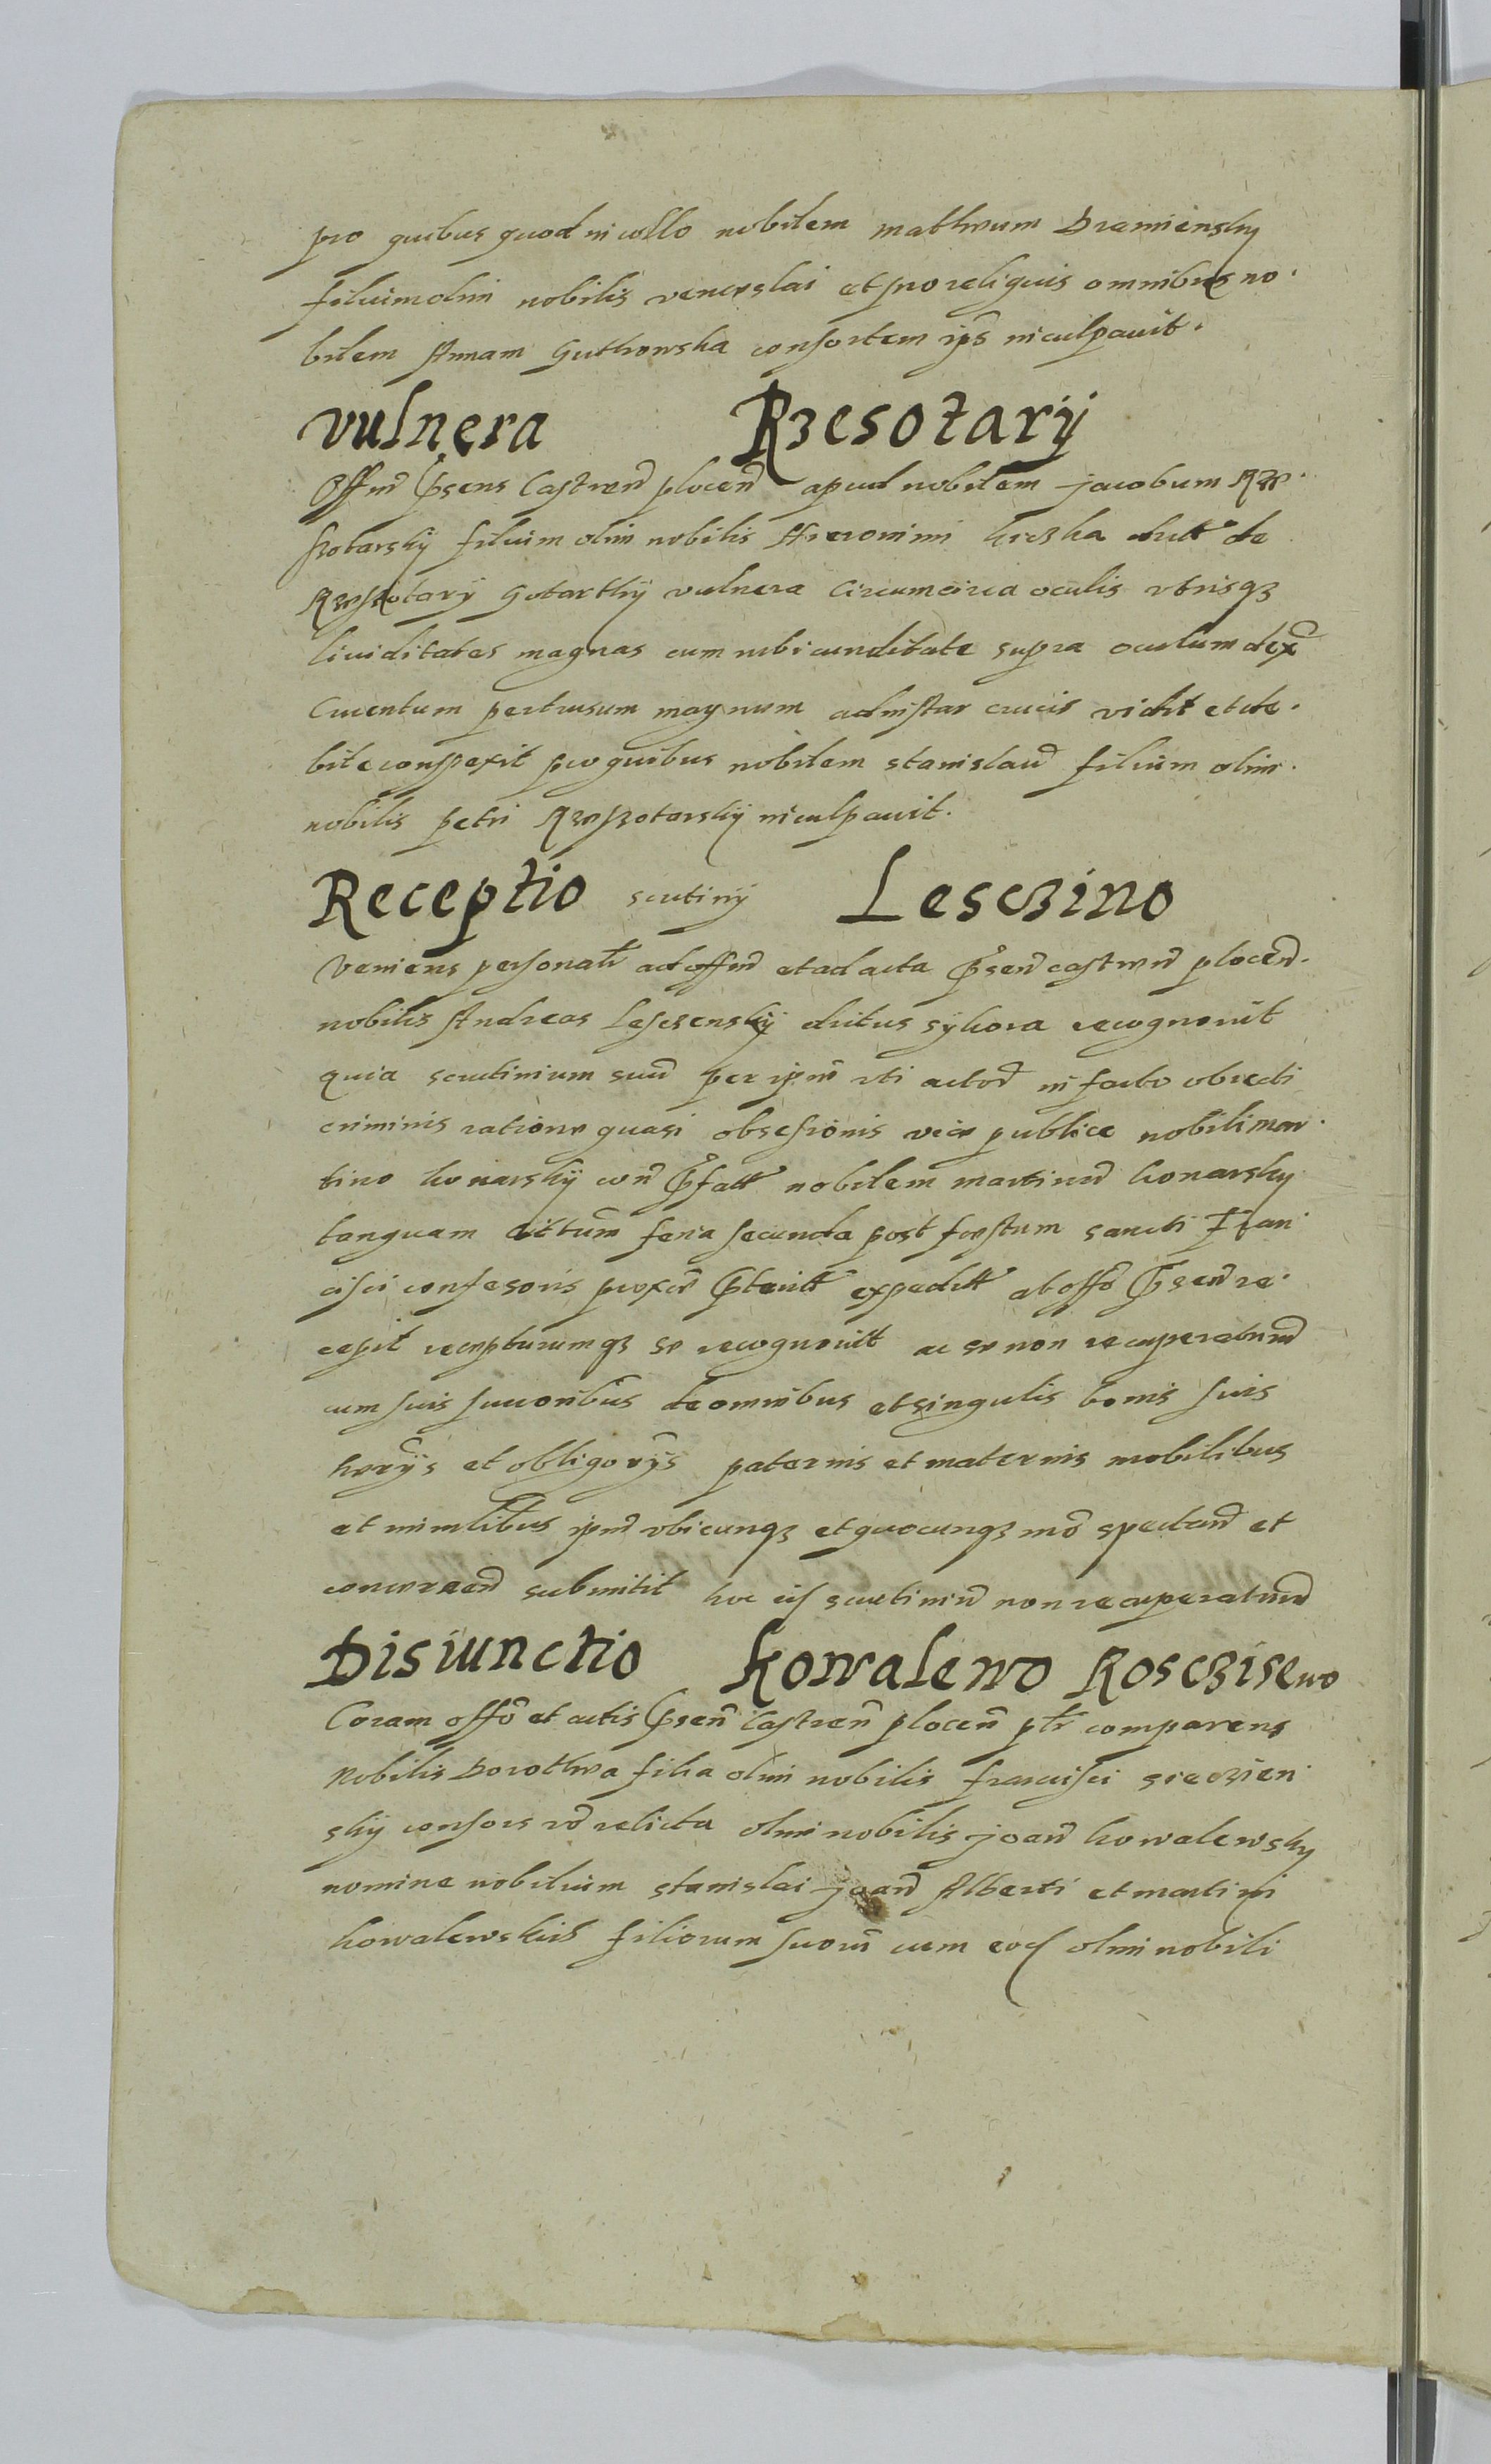 pro quibus quod in collo nobilem Matheum Dramiensky
filium olim nobilis venceslai et pro reliquis omnibus no
bilem Annam Guthowska consortem ips inculpavit.
vulnera Rzesotarÿ
Offm Pħsens Castren plocen apud nobilem Jacobum Rze
szotarskÿ filium olim nobilis Hieronimi krczka dict de
Rzeszotarÿ Gotarthÿ vulnera Circumcirca oculis utrisqz
liuiditates magnas cum rubicunditate supra oculum dex
Cruentum pertusum magnum adinstar crucis vidit et de
bite conspexit pro quibus nobilem stanislaum filium olim
nobilis petri Rzeszotarskÿ inculpauit.
Receptio scutinÿ Lesczino
Veniens personalr ad offm et ad acta Pħsen castren plocen
nobilis Andreas Lesczenskÿ dictus sÿkora recognouit
quia scrutinium suu per ipm uti actore in facto obiecti
criminis ratione quasi obsesionis vice publice nobili mar
tino konarskÿ con Pħfatt nobilem martinu konarsky
tanquam citatum feria secunda post festum sancti Fran
cisci confesoris proxie Pħterit expedit ab offo Pħsen re
cepit recepturumqz se recognouitt ac se non recuperaturu
cum suis sucoribus de omnibus et singulis bonis suis
herÿs et obligorÿs paternis et maternis mobilibus
et immlibus ipm ubicunqz et quocunqz mo spectan et
concernen submitit hoc eis scrutiniu non recuperaturu
Disiunctio kowalewo Rosczisewo
Coram offo et actis Pħsen Castren plocen plr comparens
Nobilis Dorothea filia olim nobilis francisci sieczien
skÿ consors vo relicta olim nobilis joan kowalewsky
nomine nobilium stanislai joan Alberti et martini
kowalewskich filiorum suoru cum eod olim nobili